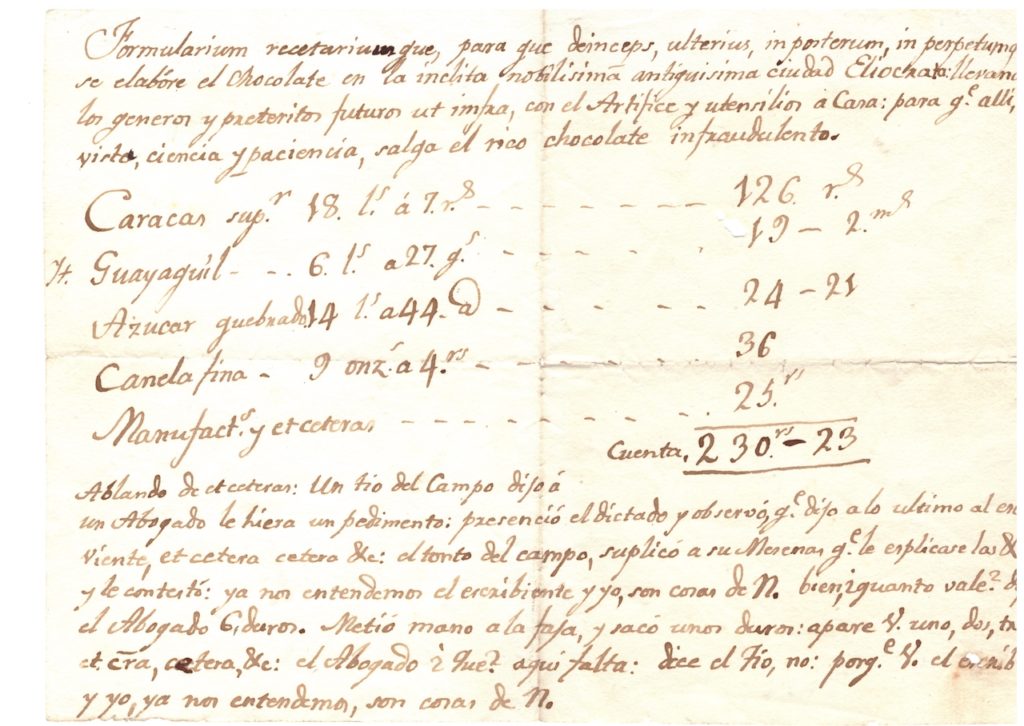 Formularium recetariumque, para que deinceps, ulterius, in posterum, in perpetumq
se elabóre el chocolate en la inclita nobilisima antiquisima ciudad Eliocrata: llevand
los generos y preteritos futuros ut infra, con el Artifice y utensilios á Casa: para q.e alli,
vista, ciencia y paciencia, salga el rico chocolate infraudulento.
Caracas sup.r 18. l.s á 7. r.s - - - - - - - 126. r.s
It. Guayaquil - - . 6. l.s a 27. q.s - - - - - 19 - 2. m.s
Azucar quebrado 14 l.s a 44. - - - - - 24 - 21
Canela fina - 9 onz.s a 4. rs - 36
Manufact.s y etceteras - - - - - - - - 25. rs
Cuenta. 230. rs - 23
Ablando de etceteras: Un tio del Campo dijo á
un Abogado le hiera un pedimento: presenció el dictado y observó, q.e dijo a lo ultimo al escri
viente, et cetera cetera &c: el tonto del campo, suplicó a su Merena, q.e le esplicase las &
y le contestó: ya nos entendemos el escribiente y yo, son cosas de N. bien, ¿quanto vale? d
el Abogado 6, duros. Metió mano a la faja, y sacó unos duros: apare V. uno, dos, tr
et c̄ra, cetera, &c: el Abogado ¿Que? aqui falta: dice el Tio, no: porq.e V. el escrib
y yo, ya nos entendemos, son cosas de N.